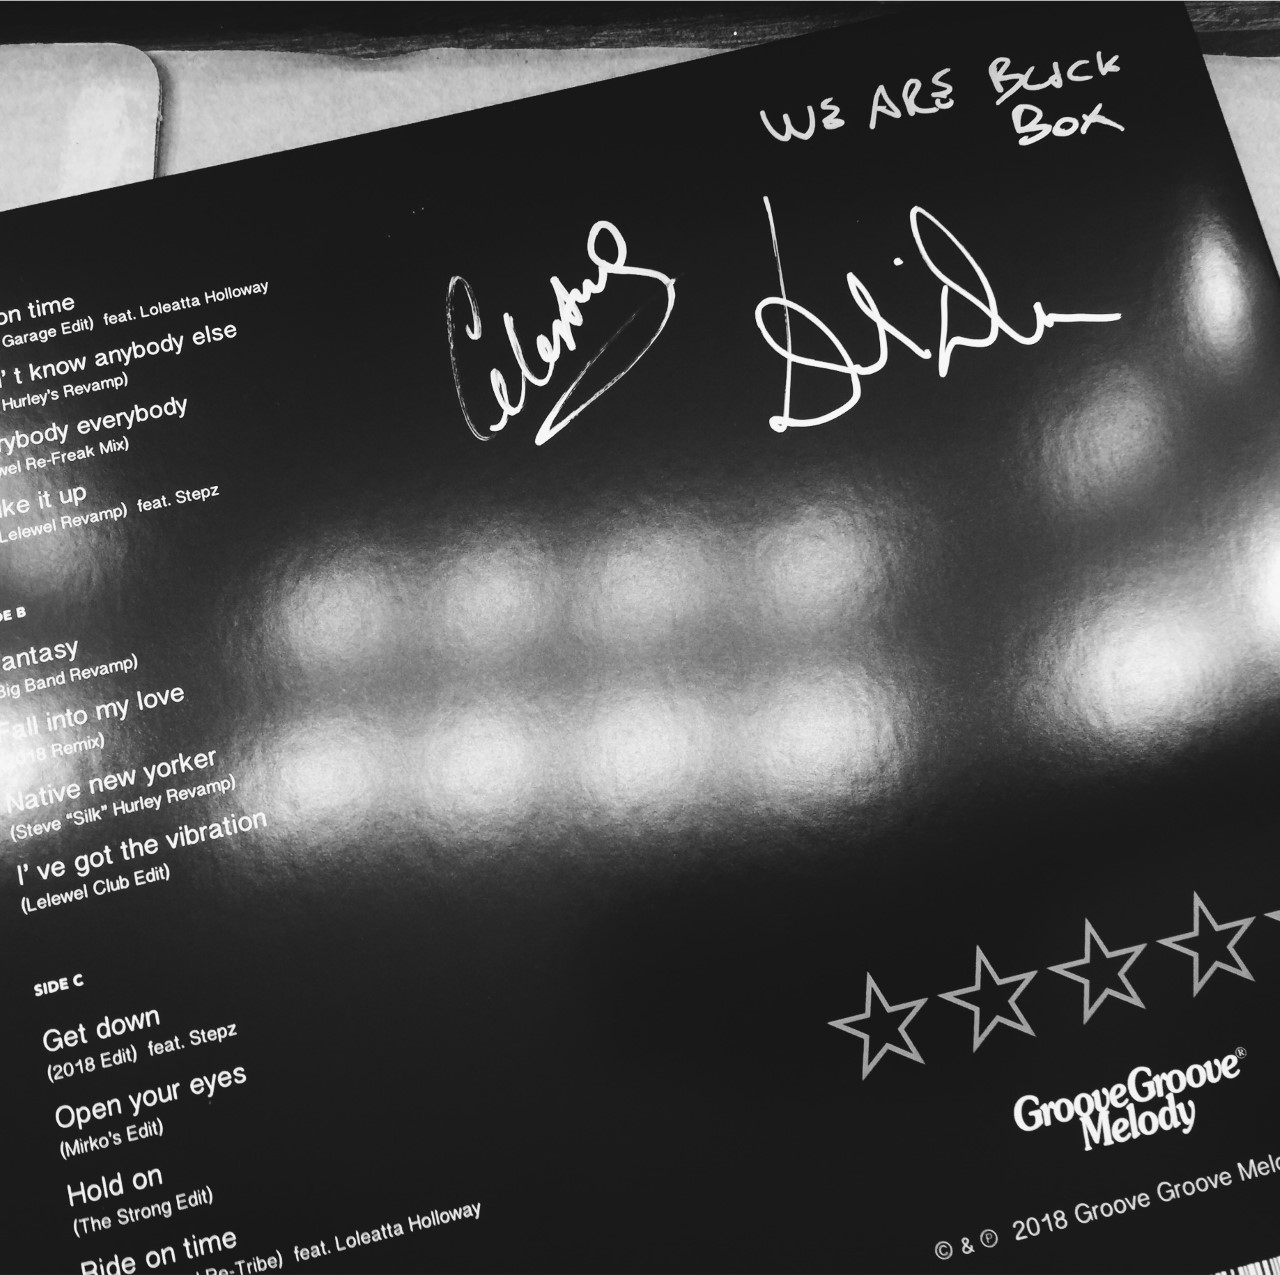 WE ARE BLACK
BOX
Celestine
on time
Garage Edit) feat. Loleatta Holloway
' t know anybody else
Hurley's Revamp)
rybody everybody
wel Re-Freak Mix)
ke it up
Lelewel Revamp) feat. Stepz
DE B
antasy
Big Band Revamp)
Fall into my love
018 Remix)
Native new yorker
(Steve "Silk" Hurley Revamp)
I' ve got the vibration
(Lelewel Club Edit)
SIDE C
Get down
(2018 Edit) feat. Stepz
Open your eyes
(Mirko's Edit)
Hold on
(The Strong Edit)
Ride on time
Re-Tribe) feat. Loleatta Holloway
GrooveGroove®
Melody
© & ℗ 2018 Groove Groove Melo